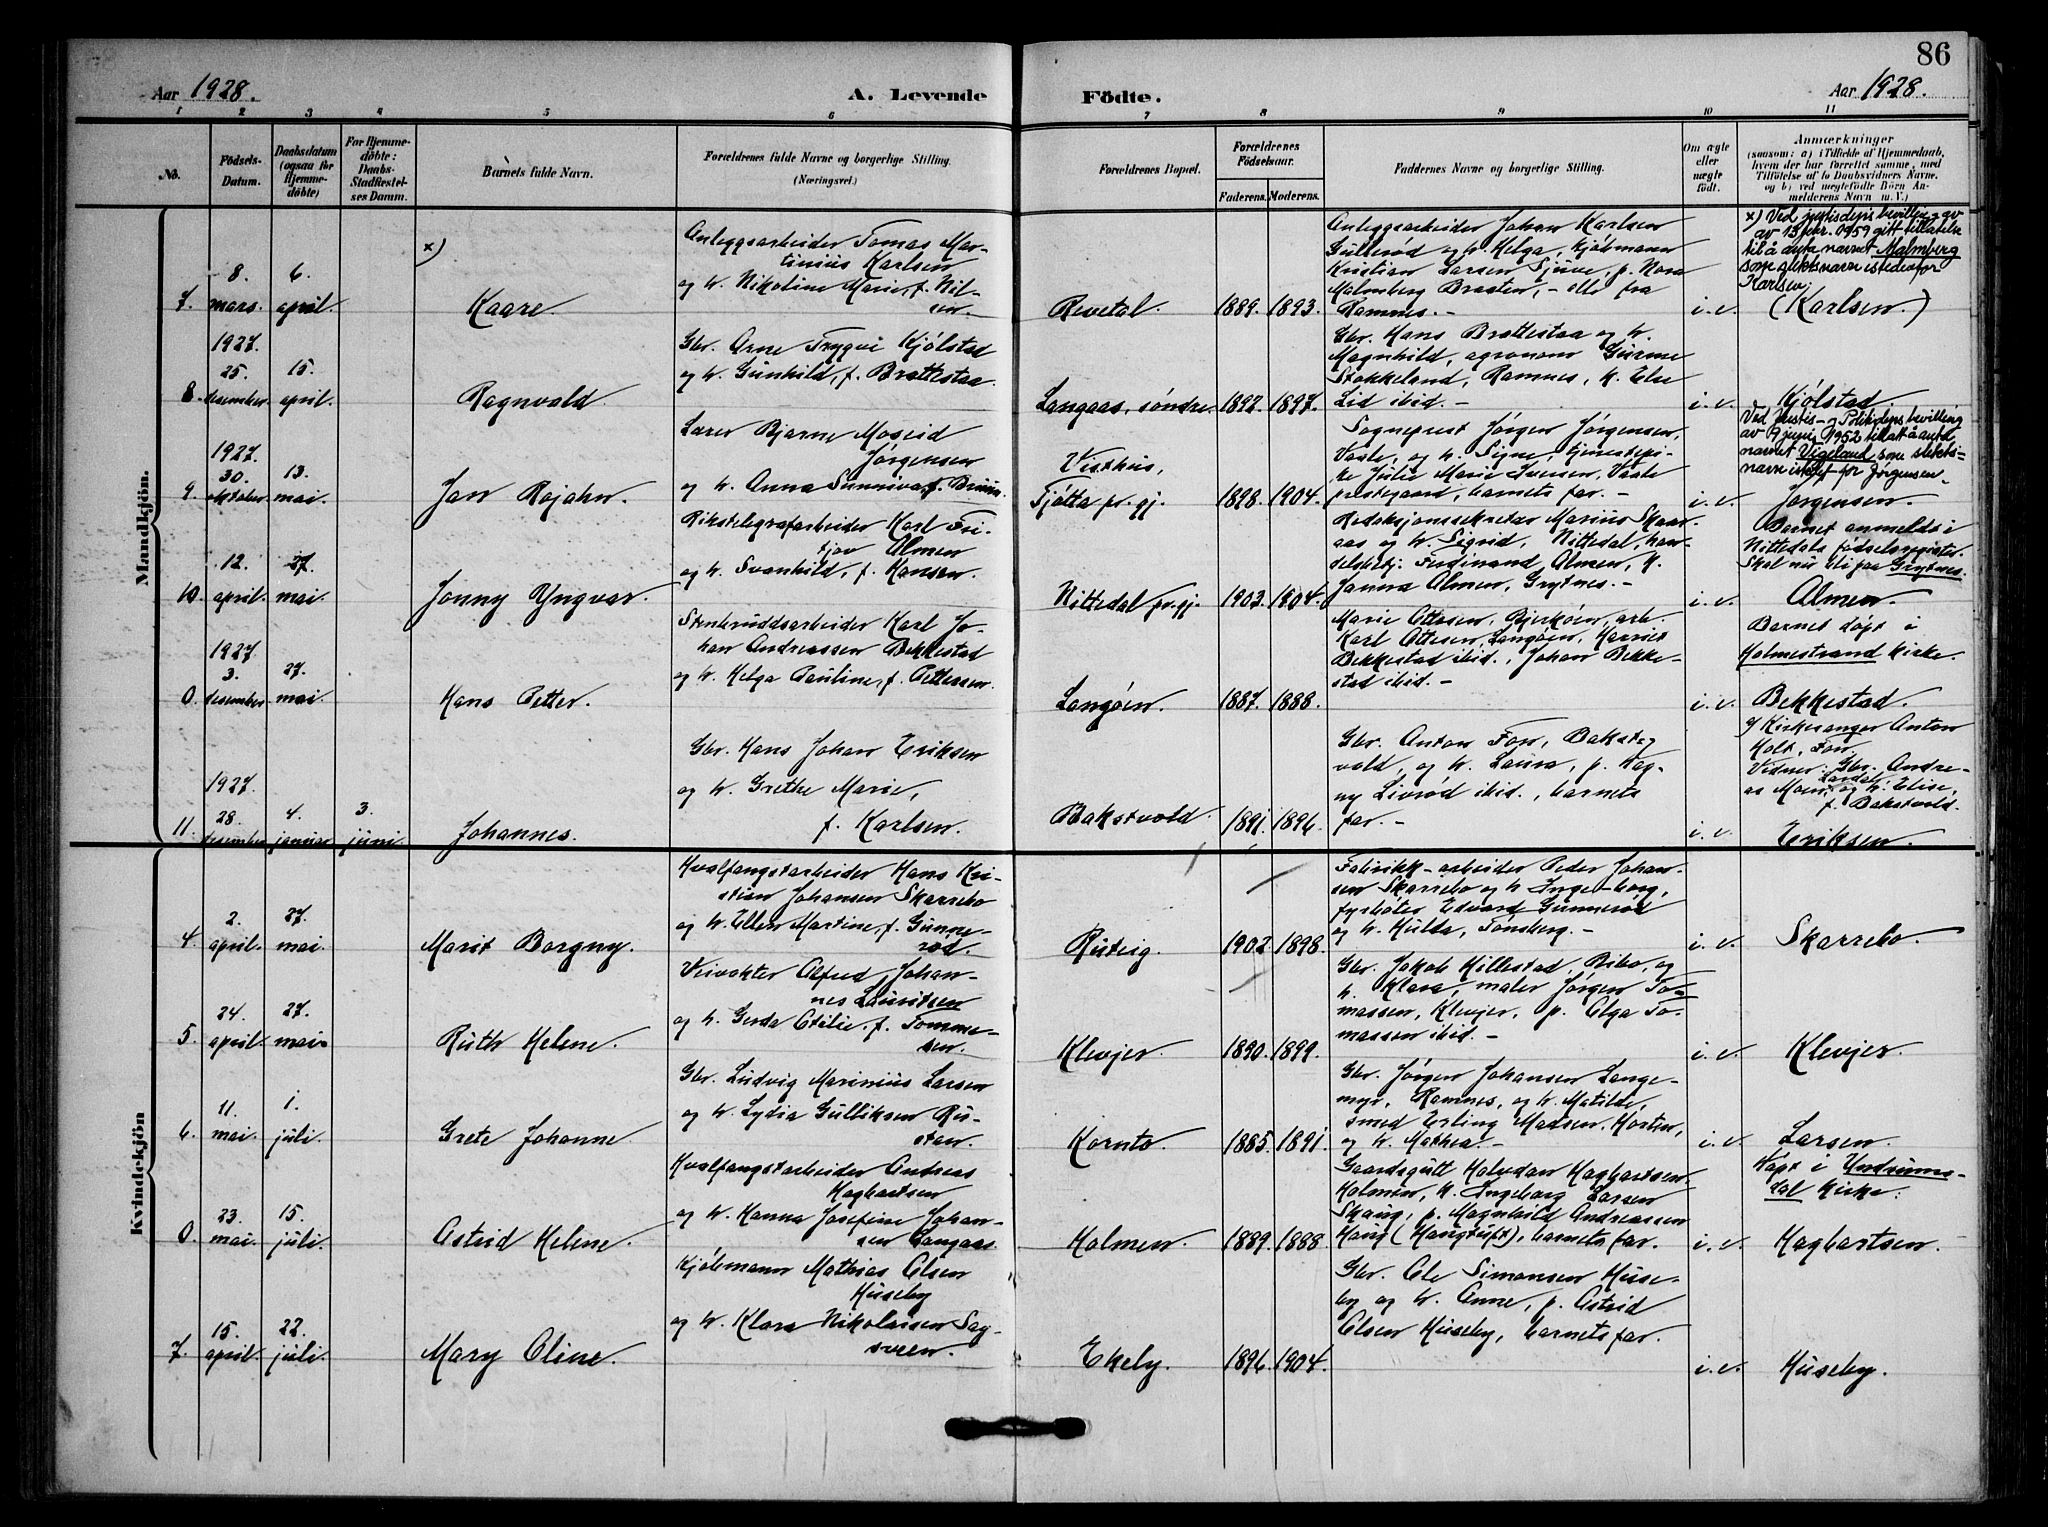 86
Aar 1928.
A. Levende Födte.
Aar 1928.
1 2 3 4 5 6 7 8 9 10 11
No.
Födsels-
Datum.
Daabsdatum
(ogsaa for
Hjemme-
döbte)
For Hjemme-
döbte:
Daabs-
Stadfæstel-
ses Datum.
Barnets fulde Navn.
Forældrenes fulde Navne og borgerlige Stilling.
(Næringsvei.)
Forældrenes Bopæl.
Forældrenes
Födselsaar.
Faderens. Moderens.
Faddernes Navne og borgerlige Stilling.
Om ægte
eller
uægte
födt.
Anmærkninger
(saasom: a) i Tilfælde af Hjemmedaab,
hvem der har forrettet samme, med
Tilföielse af to Daabsvidners Navne.
og b) ved uægtefödte Börn An-
melderens Navn m. V.)
Mandkjön.
7.
8.
mars.
6.
april.
x)
Kaare
Anleggsarbeider Tomas Mar-
tinius Karlsen
og h. Nikoline Marie, f. Nil-
sen.
Revetal.
1889. 1893.
Anleggsarbeider Johan Karlsen
Gullerød og h. Helga, kjøbmann
Kristian Larsen Sjuve, p. Nora
Malmberg Braaten, - alle fra
Ramnes. -
i. e.
x) Ved justisdeps bevilling av
av 13 febr. 1959 gitt tillatelse
til å anta navnet Malmberg
som slektsnavn istedenfor
Karlsen.
(Karlsen.)
8.
1927.
25.
desember.
15.
april.
Ragnvald
Gbr. Arne Trygvi Kjølstad
og h. Gunhild, f. Brattestaa.
Langaas, søndre.
1892. 1897.
Gbr. Hans Brattestaa og h.
Magnhild, agronom Gunnue
Stokkeland, Ramnes, k. Else
Lid ibid. -
i. e.
Kjølstad.
9.
1927.
30.
oktober
13.
mai.
Jan Rojahn.
Lærer Bjarne Moseid
Jørgensen
og h. Anna Sunniva, f. Bruun.
Visthus,
Tjøtta pr.gj.
1898. 1904.
Sogneprest Jørgen Jørgensen,
Vaale, og h. Signe, tjenestepi-
ke Julie Marie Iversen, Vaale
prestegaard, barnets far. -
i. e.
Ved Justis- og Politideps bevilling
av 9 juni 1952 tillatt å anta
navnet Vigeland som slekts-
navn istedet for Jørgensen.
Jørgensen.
10.
12.
april.
27.
mai.
Jonny Yngvar.
Rikstelegrafarbeider Karl Fri-
tjov Almen
og h. Svanhild, f. Hansen.
Nittedal pr.gj.
1903. 1904.
Redaksjonssekretær Marius Skaar-
aas og h. Sigrid, Nittedal, han-
delsbetj. Ferdinand Almen, k.
Janna Almen, Grytnes. -
i. e.
Barnet anmeldt i
Nittedals fødselsregister.
Skal nu bli paa Grytnes.
Almen.
0.
1927.
3.
desember.
27.
mai.
Hans Petter.
Stenbruddsarbeider Karl Jo-
han Andreassen Bekkestad
og h. Helga Pauline, f. Pettersen.
Langøen.
1887. 1888.
Marie Ottesen, Bjerkøen, arb.
Karl Ottesen, Langøen, Harriet
Bekkestad ibid., Johan Bekke-
stad ibid. -
i. e.
Barnet døpt i
Holmestrand kirke.
Bekkestad.
11.
1927.
28.
desember
4.
januar
3.
juni.
Johannes.
Gbr. Hans Johan Eriksen
og h. Grethe Marie,
f. Karlsen.
Bakstvold.
1891. 1896.
Gbr. Anton Fon, Bakst-
vold, og h. Laura, p. Dag-
ny Livrød ibid., barnets
far. -
i. e.
Kirkesanger Anton
Holt, Fon.
Vidner: Gbr. Andre-
as Moen, Lardal, og h. Elise,
f. Bakstvold.
Eriksen.
Kvindekjön
4.
2.
april.
27.
mai.
Marit Borgny.
Hvalfangstarbeider Hans Kri-
stian Johansen Skarrebo
og h. Ellen Martine, f. Gunne-
rød.
Rutvig.
1902. 1898.
Fabrikk-arbeider Peder Johan-
sen Skarrebo og h. Ingeborg,
fyrbøter Edvard Gunnerød
og h. Hulda, Tønsberg. -
i. e.
Skarrebo.
5.
24.
april.
27.
mai.
Ruth Helene.
Veivokter Alfred Johan-
nes Lauritsen
og h. Gerda Otilie, f. Tomme-
sen.
Klevjer.
1890. 1899.
Gbr. Jakob Hillestad, Bibo, og
h. Klara, maler Jørgen To-
massen, Klevjer, p. Olga To-
massen ibid. -
i. e.
Klevjer.
6.
11.
mai.
1.
juli.
Grete Johanne.
Gbr. Ludvig Marinius Larsen
og h. Lydia Gulliksen Ru-
stan.
Kornto.
1885. 1891.
Gbr. Jørgen Johansen Lange-
myr, Ramnes, og h. Matilde,
smed Erling Madsen, Horten,
og h. Mathea. -
i. e.
Larsen.
0.
23.
mai.
15.
juli.
Astrid Helene.
Hvalfangstarbeider Andreas
Hagbartsen
og h. Hanna Josefine Johan-
sen Langaas.
Holmen.
1889. 1888.
Gaardsgutt Halvdan Hagbartsen
Holmen, k. Ingeborg Larsen
Skaug, p. Magnhild Andreassen
Haug (Haugtuft), barnets far.
i. e.
Døpt i Undrums-
dal kirke.
Hagbartsen.
7.
15.
april.
22.
juli.
Mary Oline.
Kjøbmann Mathias Olsen
Huseby
og h. Klara Nikolaisen Sag-
sveen.
Ekely.
1896. 1904.
Gbr. Ole Simonsen Huse-
by og h. Anne, p. Astrid
Olsen Huseby, barnets far.
i. e.
Huseby.